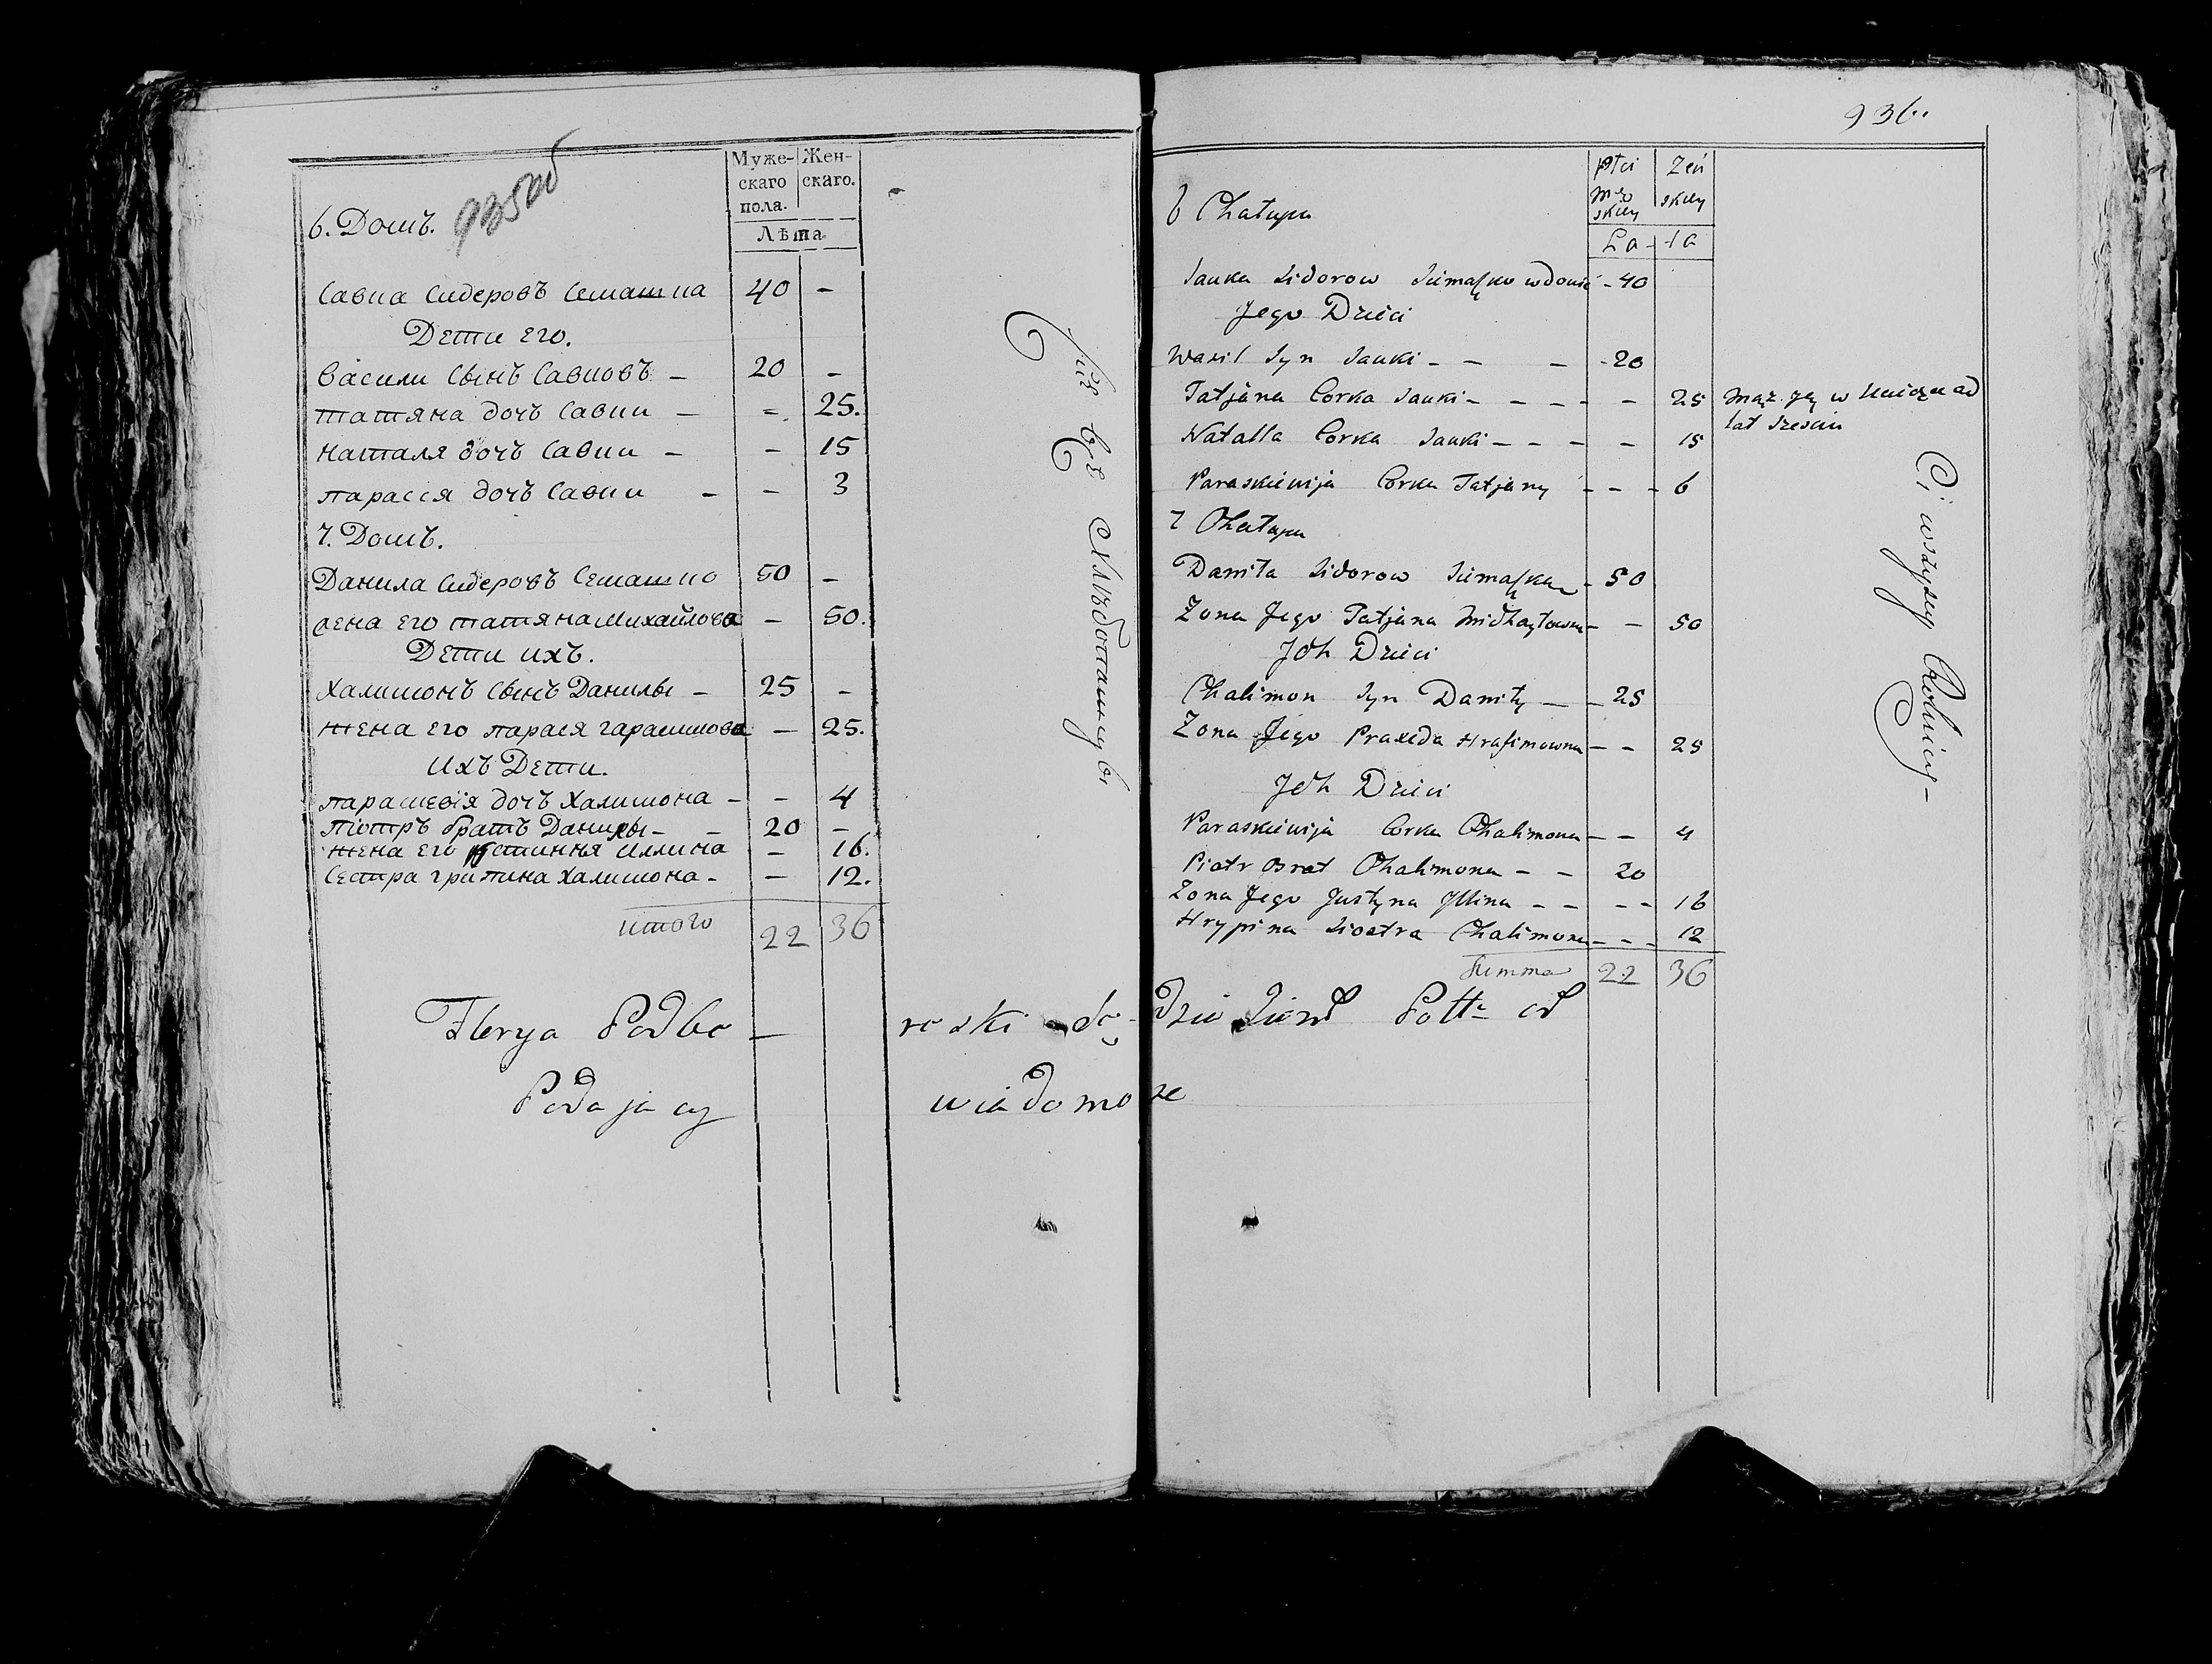 935 об
Муже-
скаго
пола.
Жен-
скаго.
Лѣта.
6. Домъ.
Савка Сидеровъ Семашка 40 -
Дети его.
Васили Сынъ Савковъ - 20 -
татяна дочъ Савки - - 25.
Наталя дочъ Савки - - 15
парасія дочъ Савки - - 3
7. Домъ.
Данила Сидеровъ Семашко 50 -
жена его татяна Михайлова - 50.
Дети ихъ.
Халимонъ Сынъ Данилы - 25 -
жена его парасія гарасимова - 25.
ихъ Дети.
параскевія дочъ Халимона - - 4
піотръ братъ Данилы - - 20 -
жена его юстиння иллина - 16.
Сестра грипина Халимона - - 12.
итого 22 36
Сіи всѣ Хлѣбопашцы
936.
płci
męż
skiey
żeń
skiey
La ta
6 Chałupa
Sauka Sidorow Siemaszko wdowiec - 40
Jego Dzieci
Wasil Syn Sauki - - - - 20
Tatjana Corka Sauki - - - - - 25 mąż jey w
lat sześciu
Natalla Corka Sauki - - - - 15
Paraskiewija Corka Tatjany - - - 6
7 Chałupa
Daniła Sidorow Siemaszka - 50
Zona Jego Tatjana Michayłowna - - 50
Jch Dzieci
Chalimon Syn Daniły - - 25
Zona Jego Praxeda Hrasimowna - - 25
Jch Dzieci
Paraskiewija Corka Chalimona - - 4
Piotr Brat Chalimona - - 20
Zona Jego Justyna Jllina - - - - 16
Hrypina Siostra Chalimona - - - 12
Summa 22 36
Ci wszyscy Rolnicy -
Podajacy wiadomosc